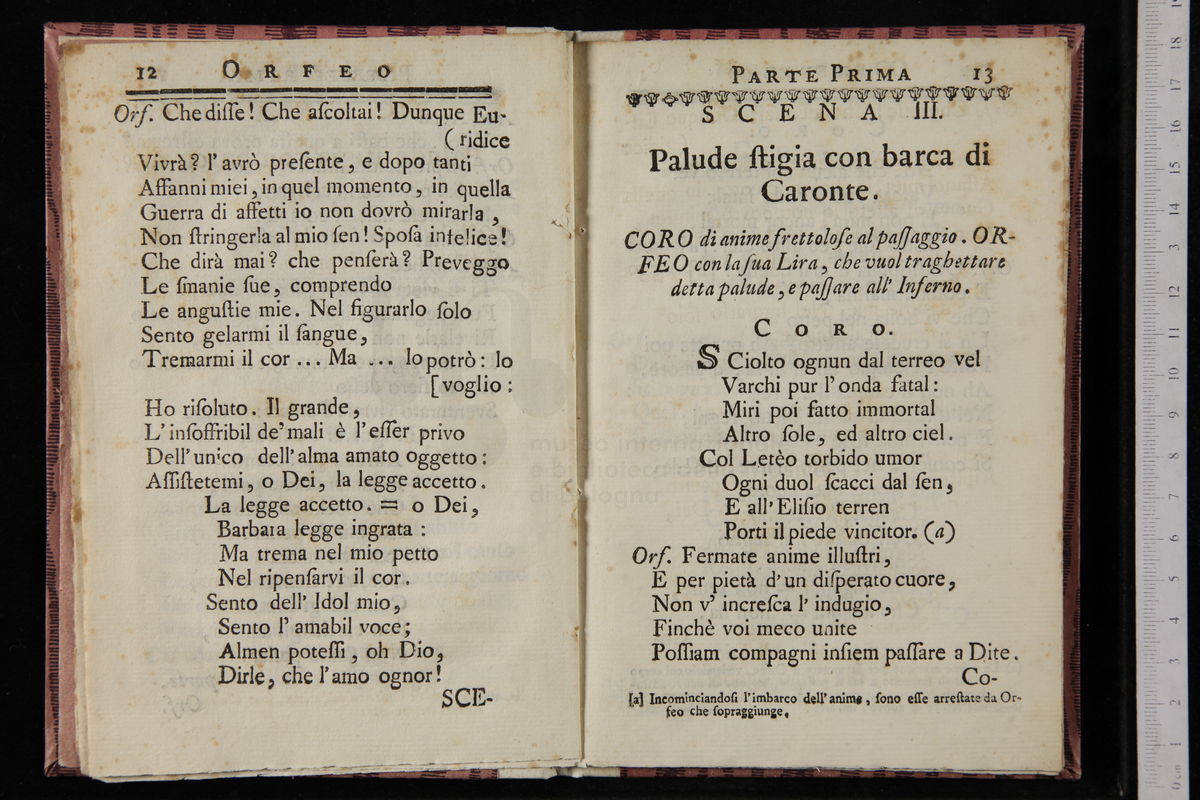 12 ORFEO
Orf. Che disse! Che ascoltai! Dunque Eu-
(ridice
Vivrà? l'avrò presente, e dopo tanti
Affanni miei, in quel momento, in quella
Guerra di affetti io non dovrò mirarla,
Non stringerla al mio sen! Sposa infelice!
Che dirà mai? che penserà? Preveggo
Le smanie sue, comprendo
Le angustie mie. Nel figurarlo solo
Sento gelarmi il sangue,
Tremarmi il cor ... Ma ... lo potrò: lo
[voglio:
Ho risoluto. Il grande,
L'insoffribil de' mali è l'esser privo
Dell'unico dell'alma amato oggetto:
Assistetemi, o Dei, la legge accetto.
La legge accetto. = o Dei,
Barbara legge ingrata:
Ma trema nel mio petto
Nel ripensarvi il cor.
Sento dell' Idol mio,
Sento l'amabil voce;
Almen potessi, oh Dio,
Dirle, che l'amo ognor!
SCE-
PARTE PRIMA 13
SCENA III.
Palude stigia con barca di
Caronte.
CORO di anime frettolose al passaggio. OR-
FEO con la sua Lira, che vuol traghettare
detta palude, e passare all' Inferno.
CORO.
SCiolto ognun dal terreo vel
Varchi pur l'onda fatal:
Miri poi fatto immortal
Altro sole, ed altro ciel.
Col Letèo torbido umor
Ogni duol scacci dal sen,
E all'Elisio terren
Porti il piede vincitor. (a)
Orf. Fermate anime illustri,
E per pietà d'un disperato cuore,
Non v' incresca l' indugio,
Finchè voi meco unite
Possiam compagni insiem passare a Dite.
Co-
[a] Incominciandosi l'imbarco dell'anime, sono esse arrestate da Or-
feo che sopraggiunge.
museo interna
e biblioteca d
di bologna
0 cm 1 2 3 4 5 6 7 8 9 10 11 12 13 14 15 16 17 18 19